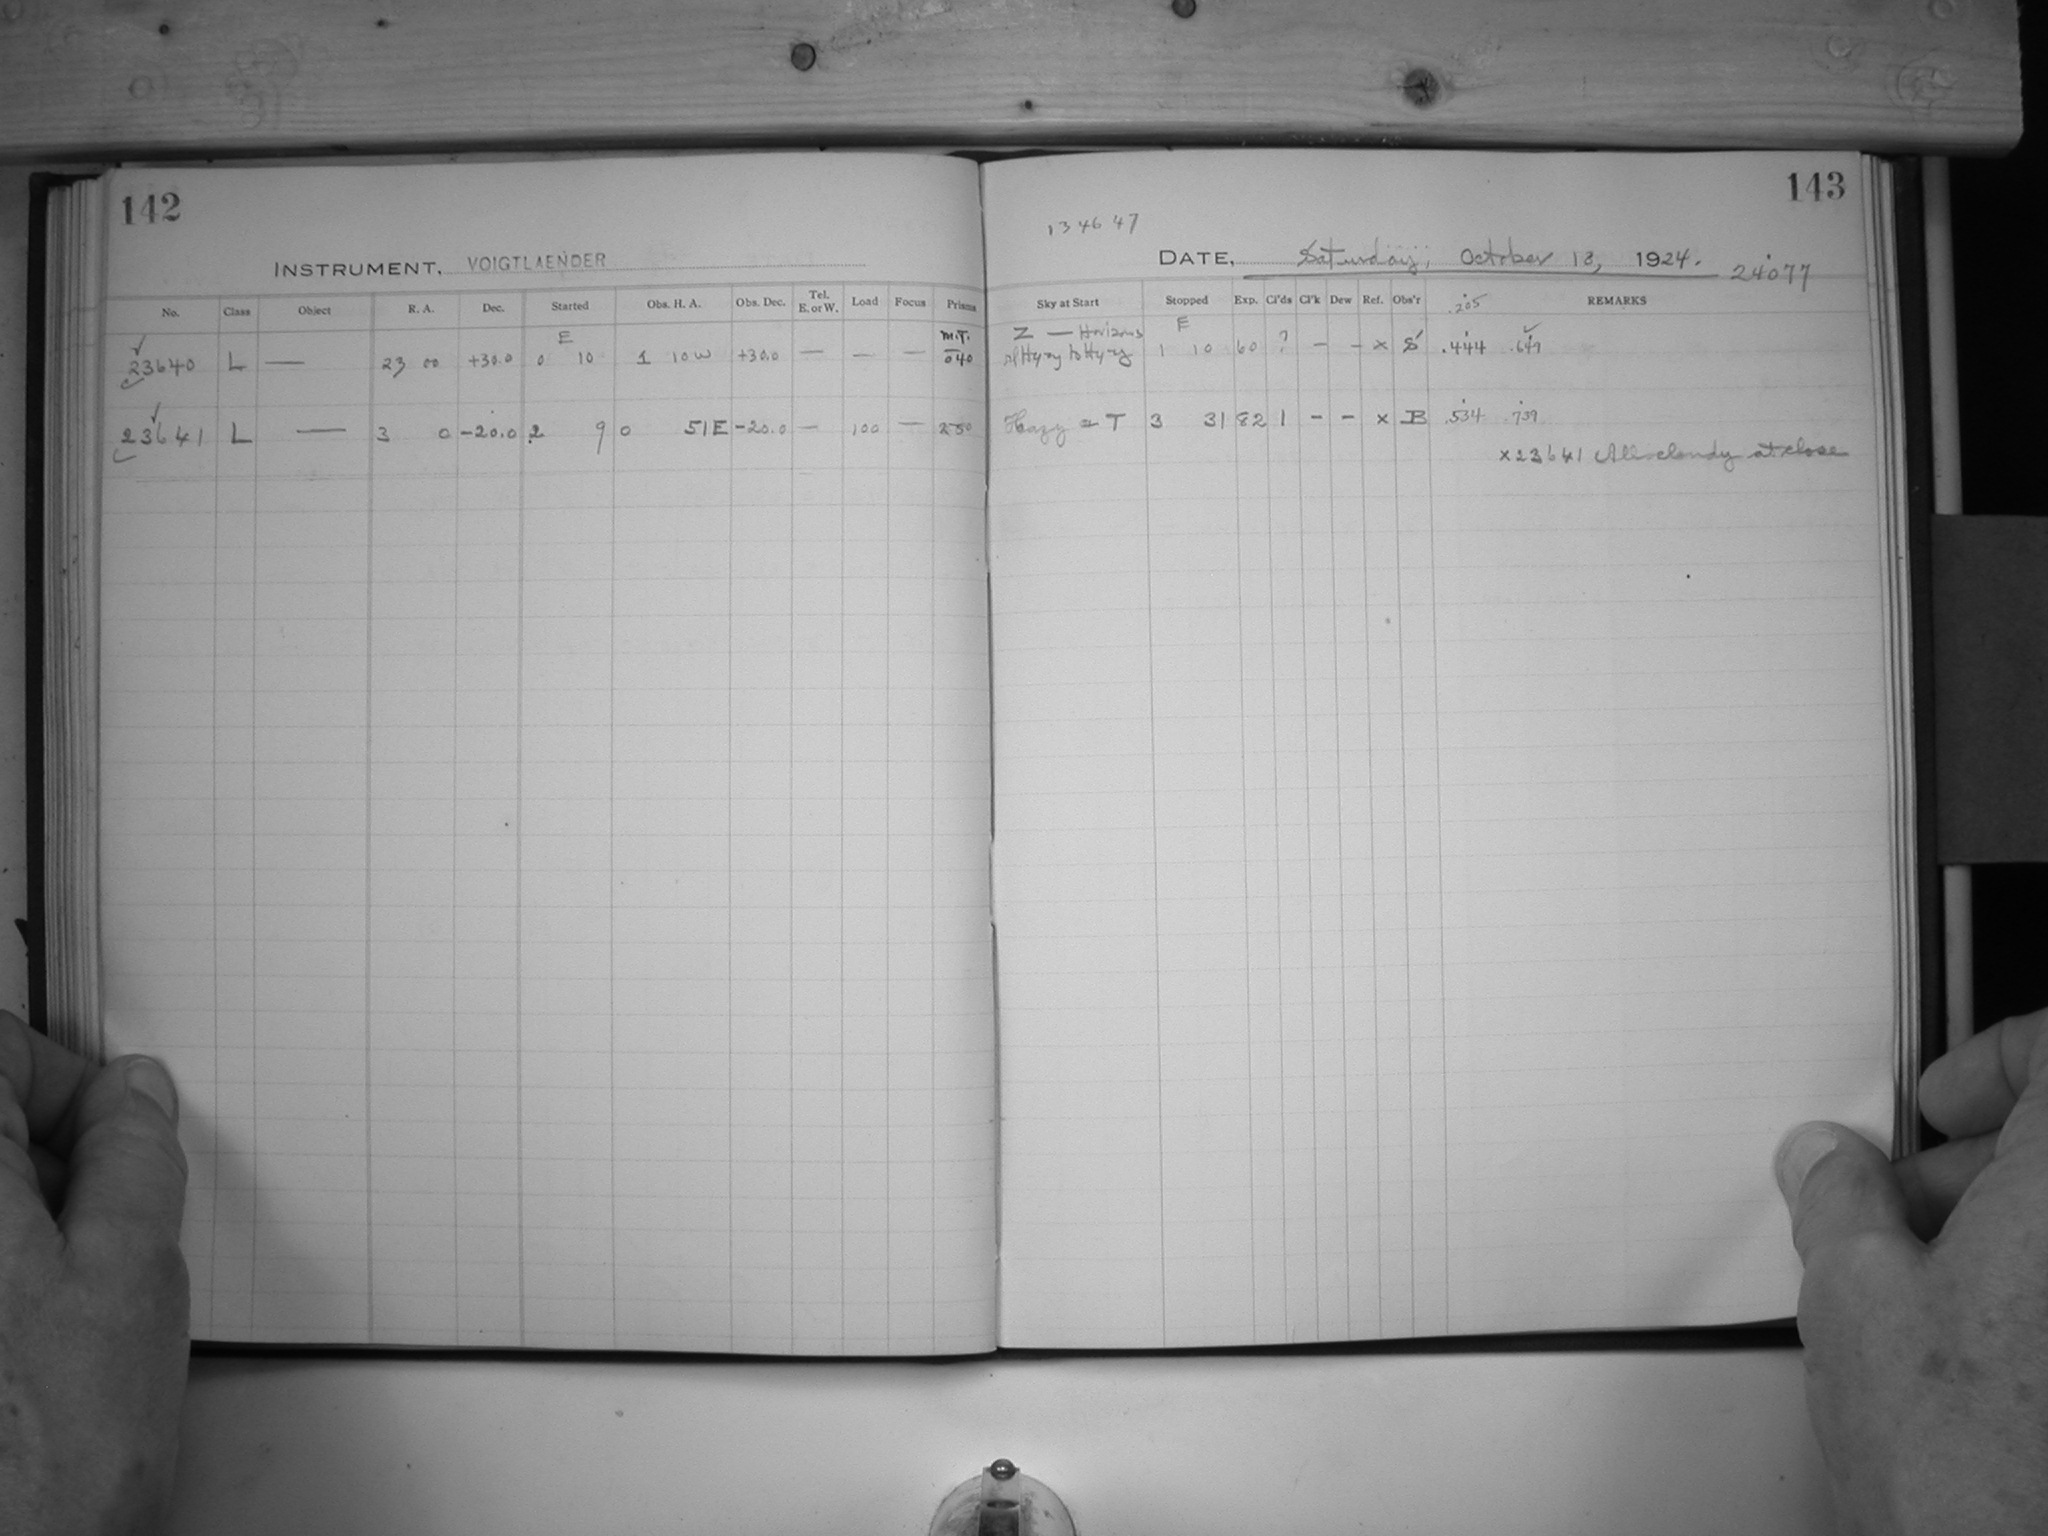 142
INSTRUMENT, VOIGTLAENDER
No. Class Object R. A. Dec. Started Obs. H. A. Obs. Dec. Tel. E. or W. Load Focus Prisms
E M.T.
23640 L — 23 00 +30.0 0 10 1 10 W +30.0 — — — 040
23641 L — 3 0 -20.0 2 9 0 51 E -20.0 — 100 — 250
143
13 46 47
DATE, Saturday, October 18, 1924. 24077
Sky at Start Stopped Exp. Cl'ds Cl'k Dew Ref. Obs'r .205 REMARKS
Z — Horizons E
1 10 60 ? – – x S .444 .649
Hazy = T 3 31 82 1 – – x B .534 .739
x 23641 All cloudy at close